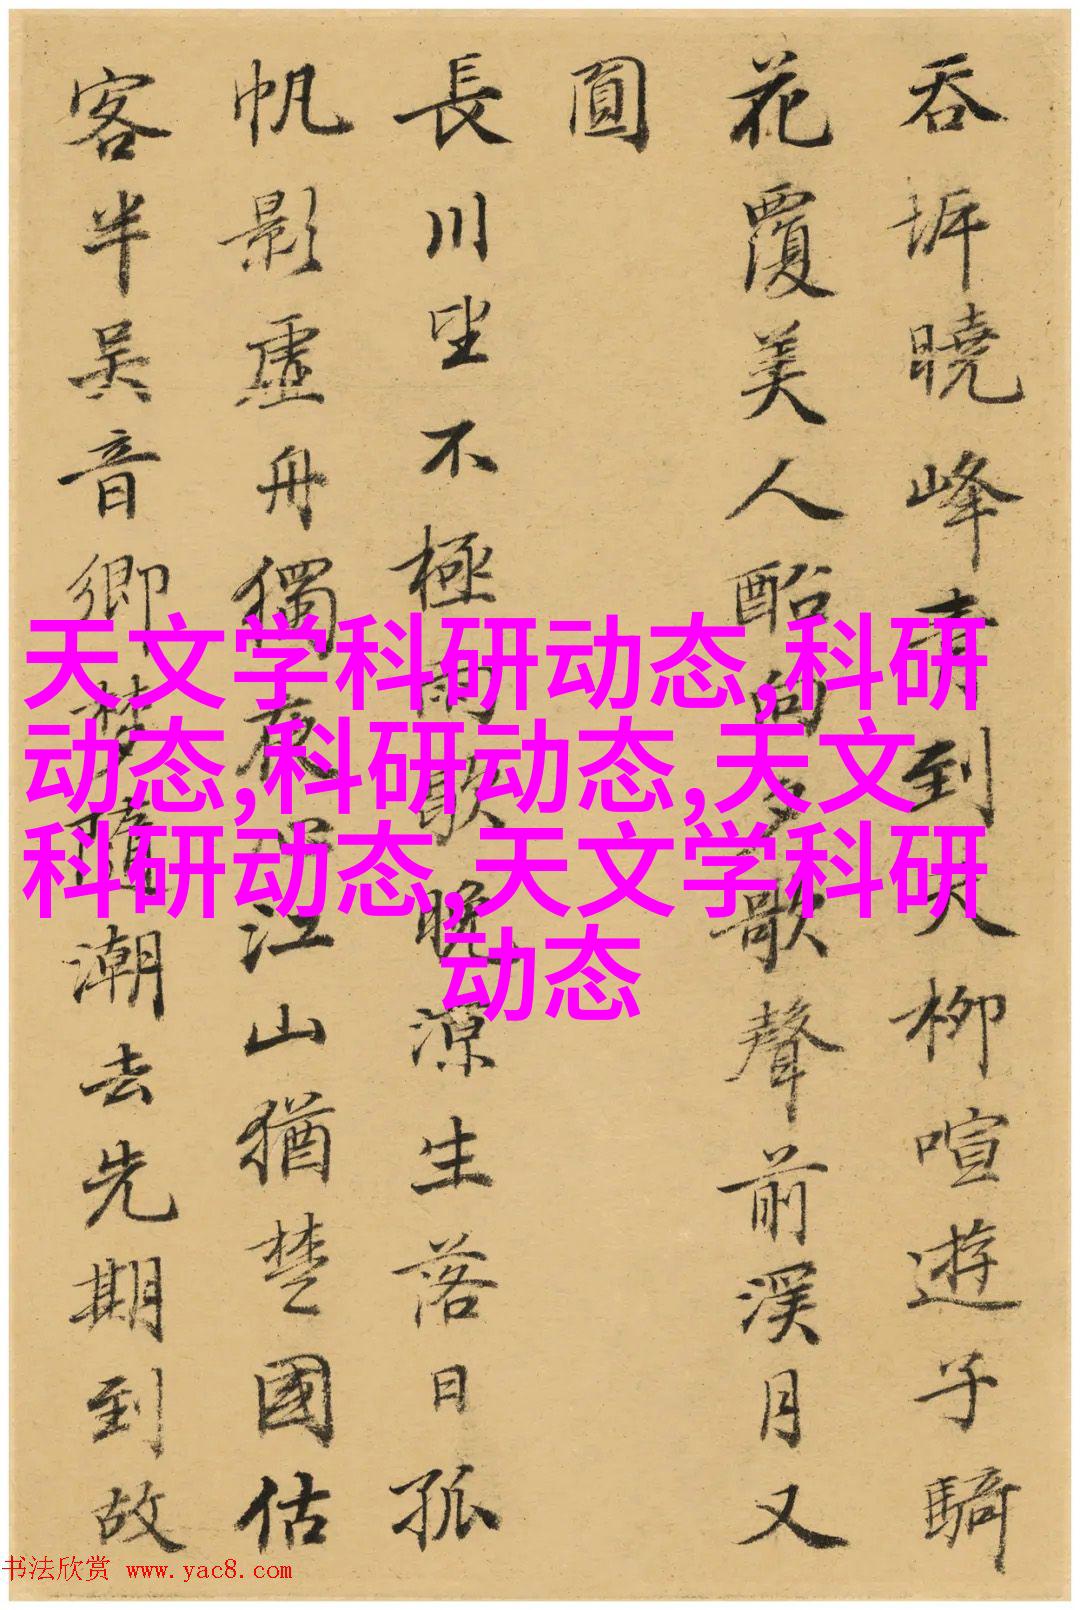 吞坼曉峰青到天柳喧遊子騎
花覆美人船向夕歌聲前溪月又
圓
長川坐不極雨歇晚涼生落日孤
帆影虛舟獨夜江山猶楚國估
客半吳音鄉夢隨潮去先期到故
天文学科研动态,科研
动态,科研动态,天文
科研动态,天文学科研
动态
书法欣赏 www.yac8.com